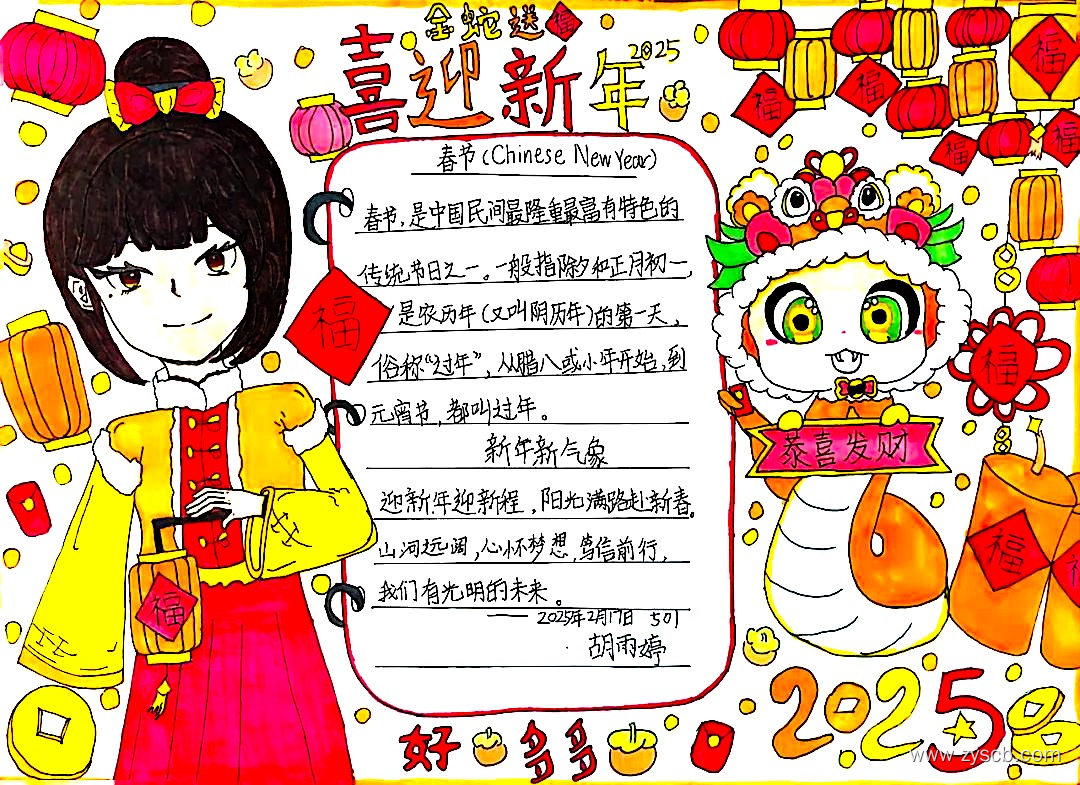 金蛇送福
喜迎新年
2025
福
福
福
福
福
春节(Chinese New Year)
春节,是中国民间最隆重最富有特色的
传统节日之一。一般指除夕和正月初一,
是农历年(又叫阴历年)的第一天,
俗称“过年”,从腊八或小年开始,到
元宵节,都叫过年。
新年新气象
迎新年迎新程,阳光满路赴新春。
山河远阔,心怀梦想,笃信前行,
我们有光明的未来。
——2025年2月17日 501
胡雨婷
福
福
福
恭喜发财
福
福
好多多
2025
www.zyscb.com